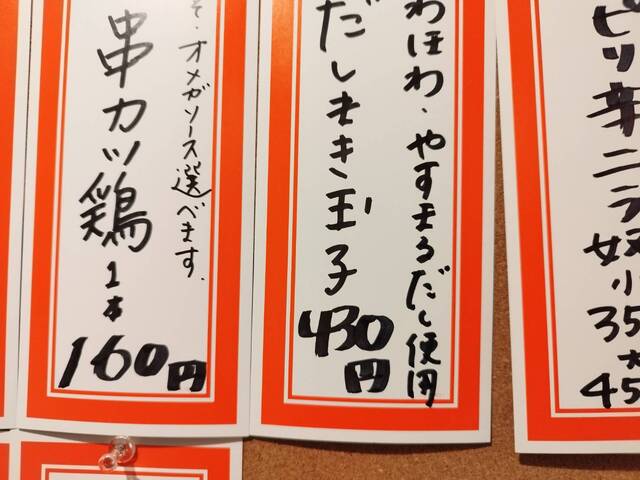 ピリ辛ニラ奴
小35
大45
わほわ・やすまるだし使用
だしまき玉子
430円
そ・オメガソース選べます.
串カツ鶏1本
160円